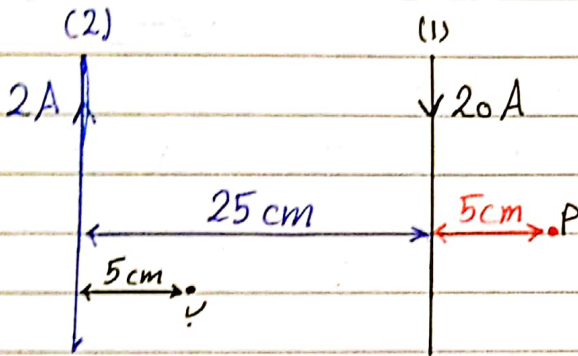 (2) (1)
2A 20A
25 cm 5cm P
5cm